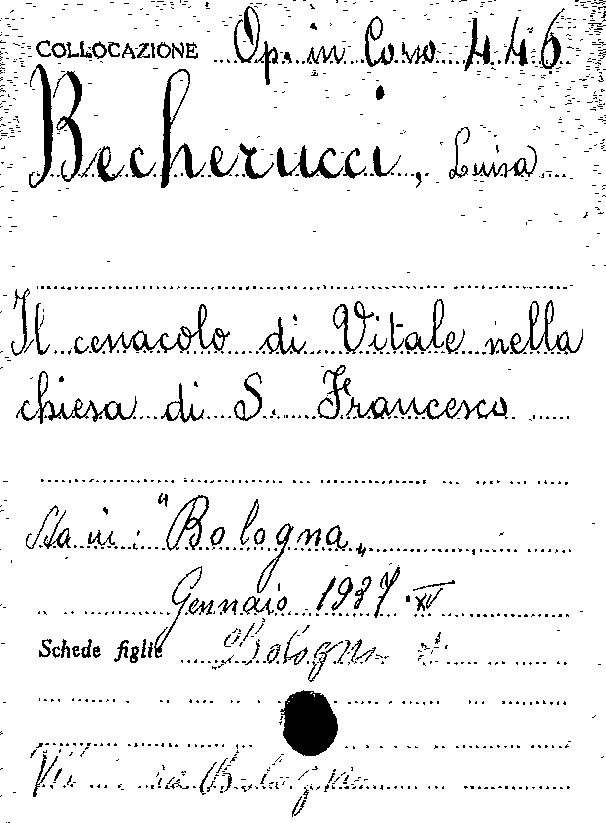 COLLOCAZIONE Op. in Corso 446
Becherucci, Luisa
Il cenacolo di Vitale nella
chiesa di S. Francesco
Sta in: "Bologna„
Gennaio 1937 · XV
Schede figlie Bologna
Bologna